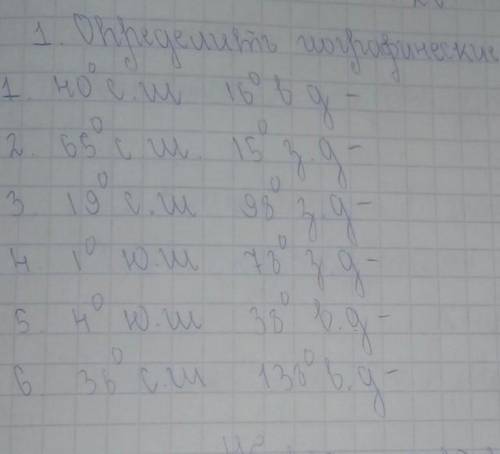 1. Определить географические
1. 40° с.ш 16° в д -
2. 65° с ш. 15° з.д -
3. 19° с.ш 98° з.д -
4 1° ю.ш 78° з.д -
5. 4° ю.ш 38° в.д -
6. 36° с.ш 138° в.д -